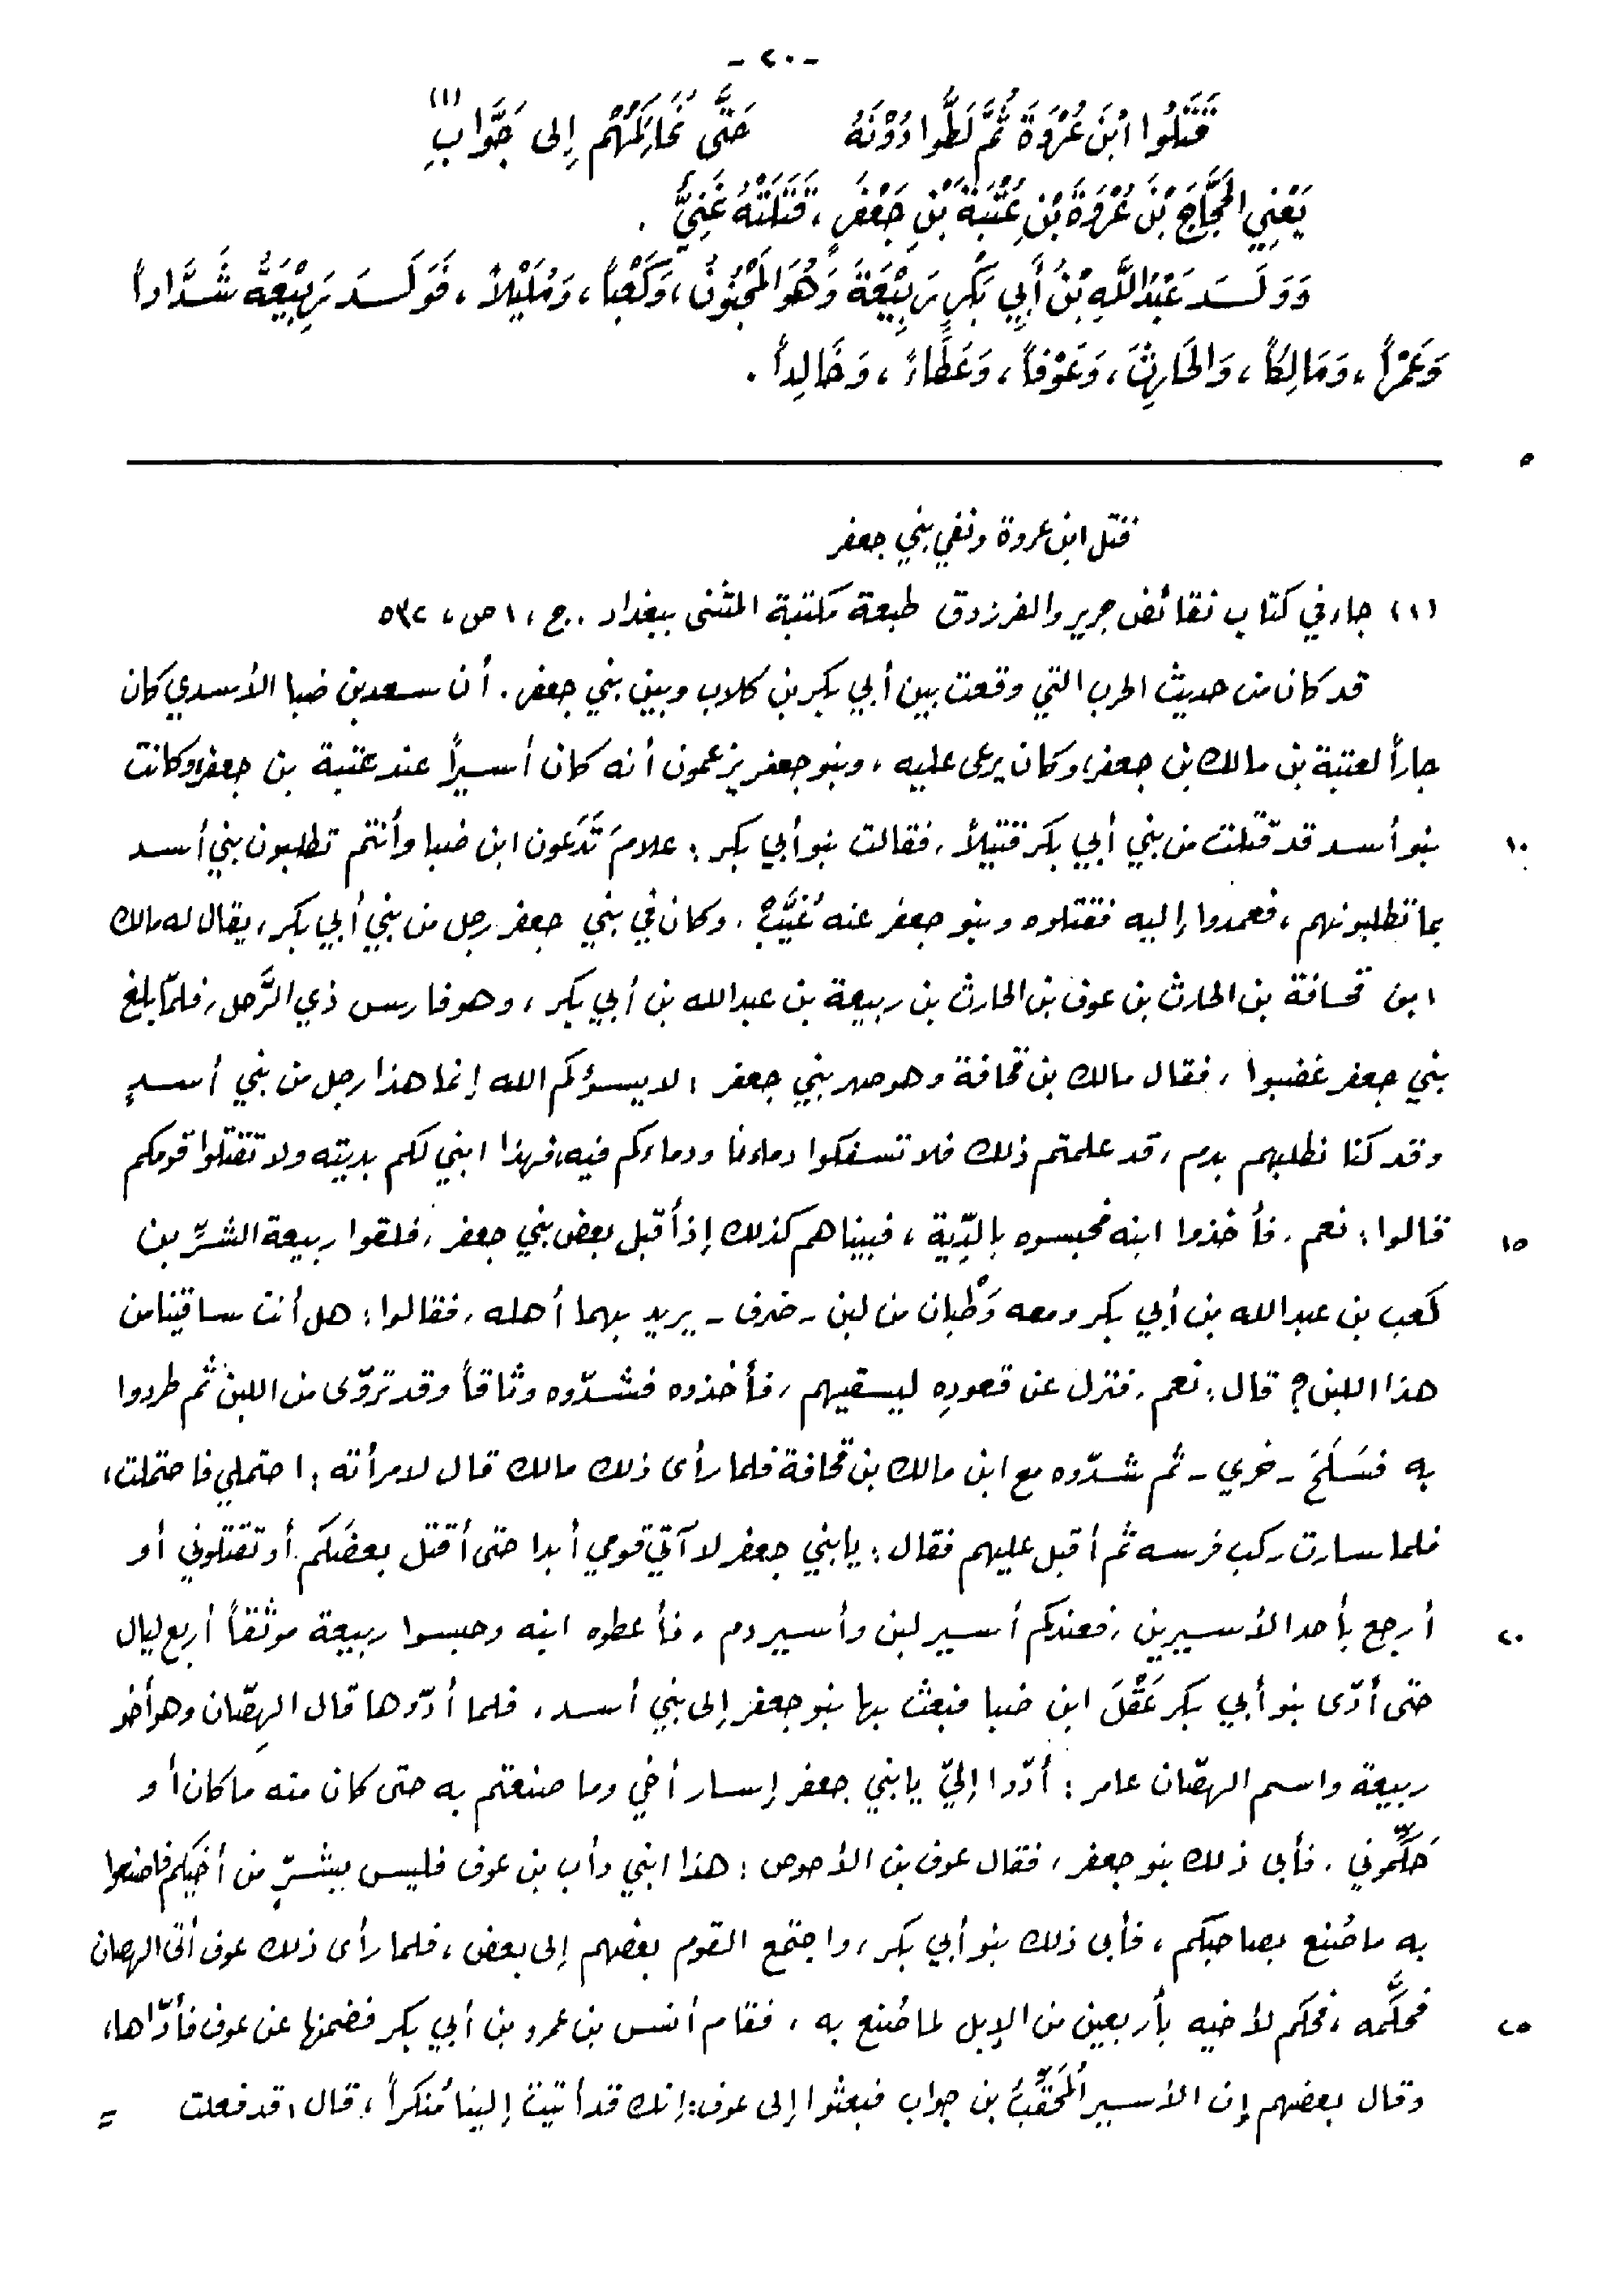 - ٢٠ -
قَتَلُوا ابْنَ عُرْوَةَ ثُمَّ لَطُّوا دُوْنَهُ حَتَّى نُحَاكِمَهُمْ إِلى جَوَّابِ (١)
يَعْنِي الحَجَّاجَ بْنَ عُرْوَةَ بْنِ عُتْبَةَ بْنِ جَعْفَرٍ، قَتَلَتْهُ غَنِيٌّ .
وَوَلَـدَ عَبْدُ اللَّهِ بْنُ أَبِي بَكْرٍ رَبِيْعَةَ وَهُوَ المَجْنُونُ، وَكَعْباً، وَمُلَيْلاً، فَوَلَـدَ رَبِيْعَةُ شَدَّاداً
وَعَمْراً، وَمَالِكاً، وَالحَارِثَ، وَعَوْفاً، وَعَطَاءً، وَخَالِداً .
٥
قتل ابن عروة ونفي بني جعفر
(١) جاء في كتاب نقائض جرير والفرزدق طبعة مكتبة المثنى ببغداد . ج ، ١ ص ، ٥٣٢
قد كان من حديث الحرب التي وقعت بين أبي بكر بن كلاب وبين بني جعفر . أن سعد بن ضبا الأسدي كان
جاراً لعتبة بن مالك بن جعفر، وكان يرعى عليه ، وبنو جعفر يزعمون أنه كان أسيراً عند عتبة بن جعفر، وكانت
بنو أسد قد قتلت من بني أبي بكر قتيلاً ، فقالت بنو أبي بكر : علامَ تَدَعون ابن ضبا وأنتم تطلبون بني أسد ١٠
بما تطلبونهم ، فعمدوا إليه فقتلوه وبنو جعفر عنه غُيَّبٌ . وكان في بني جعفر رجل من بني أبي بكر ، يقال له مالك
ابن قحافة بن الحارث بن عوف بن الحارث بن ربيعة بن عبد الله بن أبي بكر ، وهو فارس ذي الرَّحل ، فلمّا بلغ
بني جعفر غضبوا ، فقال مالك بن قحافة وهو صهر بني جعفر : لا يسؤكم الله إنما هذا رجل من بني أسدٍ
وقد كنا نطلبهم بدم ، قد علمتم ذلك فلا تسفكوا دماءنا ودماءكم فيه، فهذا ابني لكم بديته ولا تقتلوا قومكم
قالوا : نعم . فأخذوا ابنه فحبسوه بالدِّية ، فبيناهم كذلك إذ أقبل بعض بني جعفر ، فلقوا ربيعة الشرِّ بن ١٥
كعب بن عبد الله بن أبي بكر ومعه وَطْبان من لبن - ضرف - يريد بهما أهله ، فقالوا : هل أنت ساقينا من
هذا اللبن ؟ قال : نعم . فنزل عن قعودِه ليسقيهم ، فأخذوه فشدّوه وثاقاً وقد تروّى من اللبن ثم طردوا
به فسَلَحَ - خري - ثم شدّوه مع ابن مالك بن قحافة فلما رأى ذلك مالك قال لامرأته : احتملي فاحتملت ،
فلما سارت ركب فرسه ثم أقبل عليهم فقال : يابني جعفر لا آتي قومي أبدا حتى أقتل بعضَكم أو تقتلوني أو
أرجع بأحد الأسيرين ، فعندكم أسير لبن وأسير دم ، فأعطوه ابنه وحبسوا ربيعة موثَقاً أربع ليال ٢٠
حتى أدّى بنو أبي بكر عَقْلَ ابن ضبا فبعث بها بنو جعفر إلى بني أسد ، فلما أدّوها قال الهِصّان وهو أخو
ربيعة واسم الهصّان عامر : أدّوا إليّ يابني جعفر إسار أخي وما صنعتم به حتى كان منه ما كان أو
حَكِّموني . فأبى ذلك بنو جعفر ، فقال عوف بن الأحوص : هذا ابني دأب بن عوف فليس بشرّ من أخيكم فاصنعوا
به ما صُنع بصاحبكم ، فأبى ذلك بنو أبي بكر ، واجتمع القوم بعضهم إلى بعض ، فلما رأى ذلك عوف أتى الهصان
فحكَّمه ، فحكم لأخيه بأربعين من الإبل لما صُنع به ، فقام أنس بن عمرو بن أبي بكر فضمنها عن عوف فأدّاها، ٢٥
وقال بعضهم إن الأسير المُحَقَّبُ بن جواب فبعثوا إلى عوف : إنك قد أتيت إلينا مُنكراً ، قال ، قد فعلت =